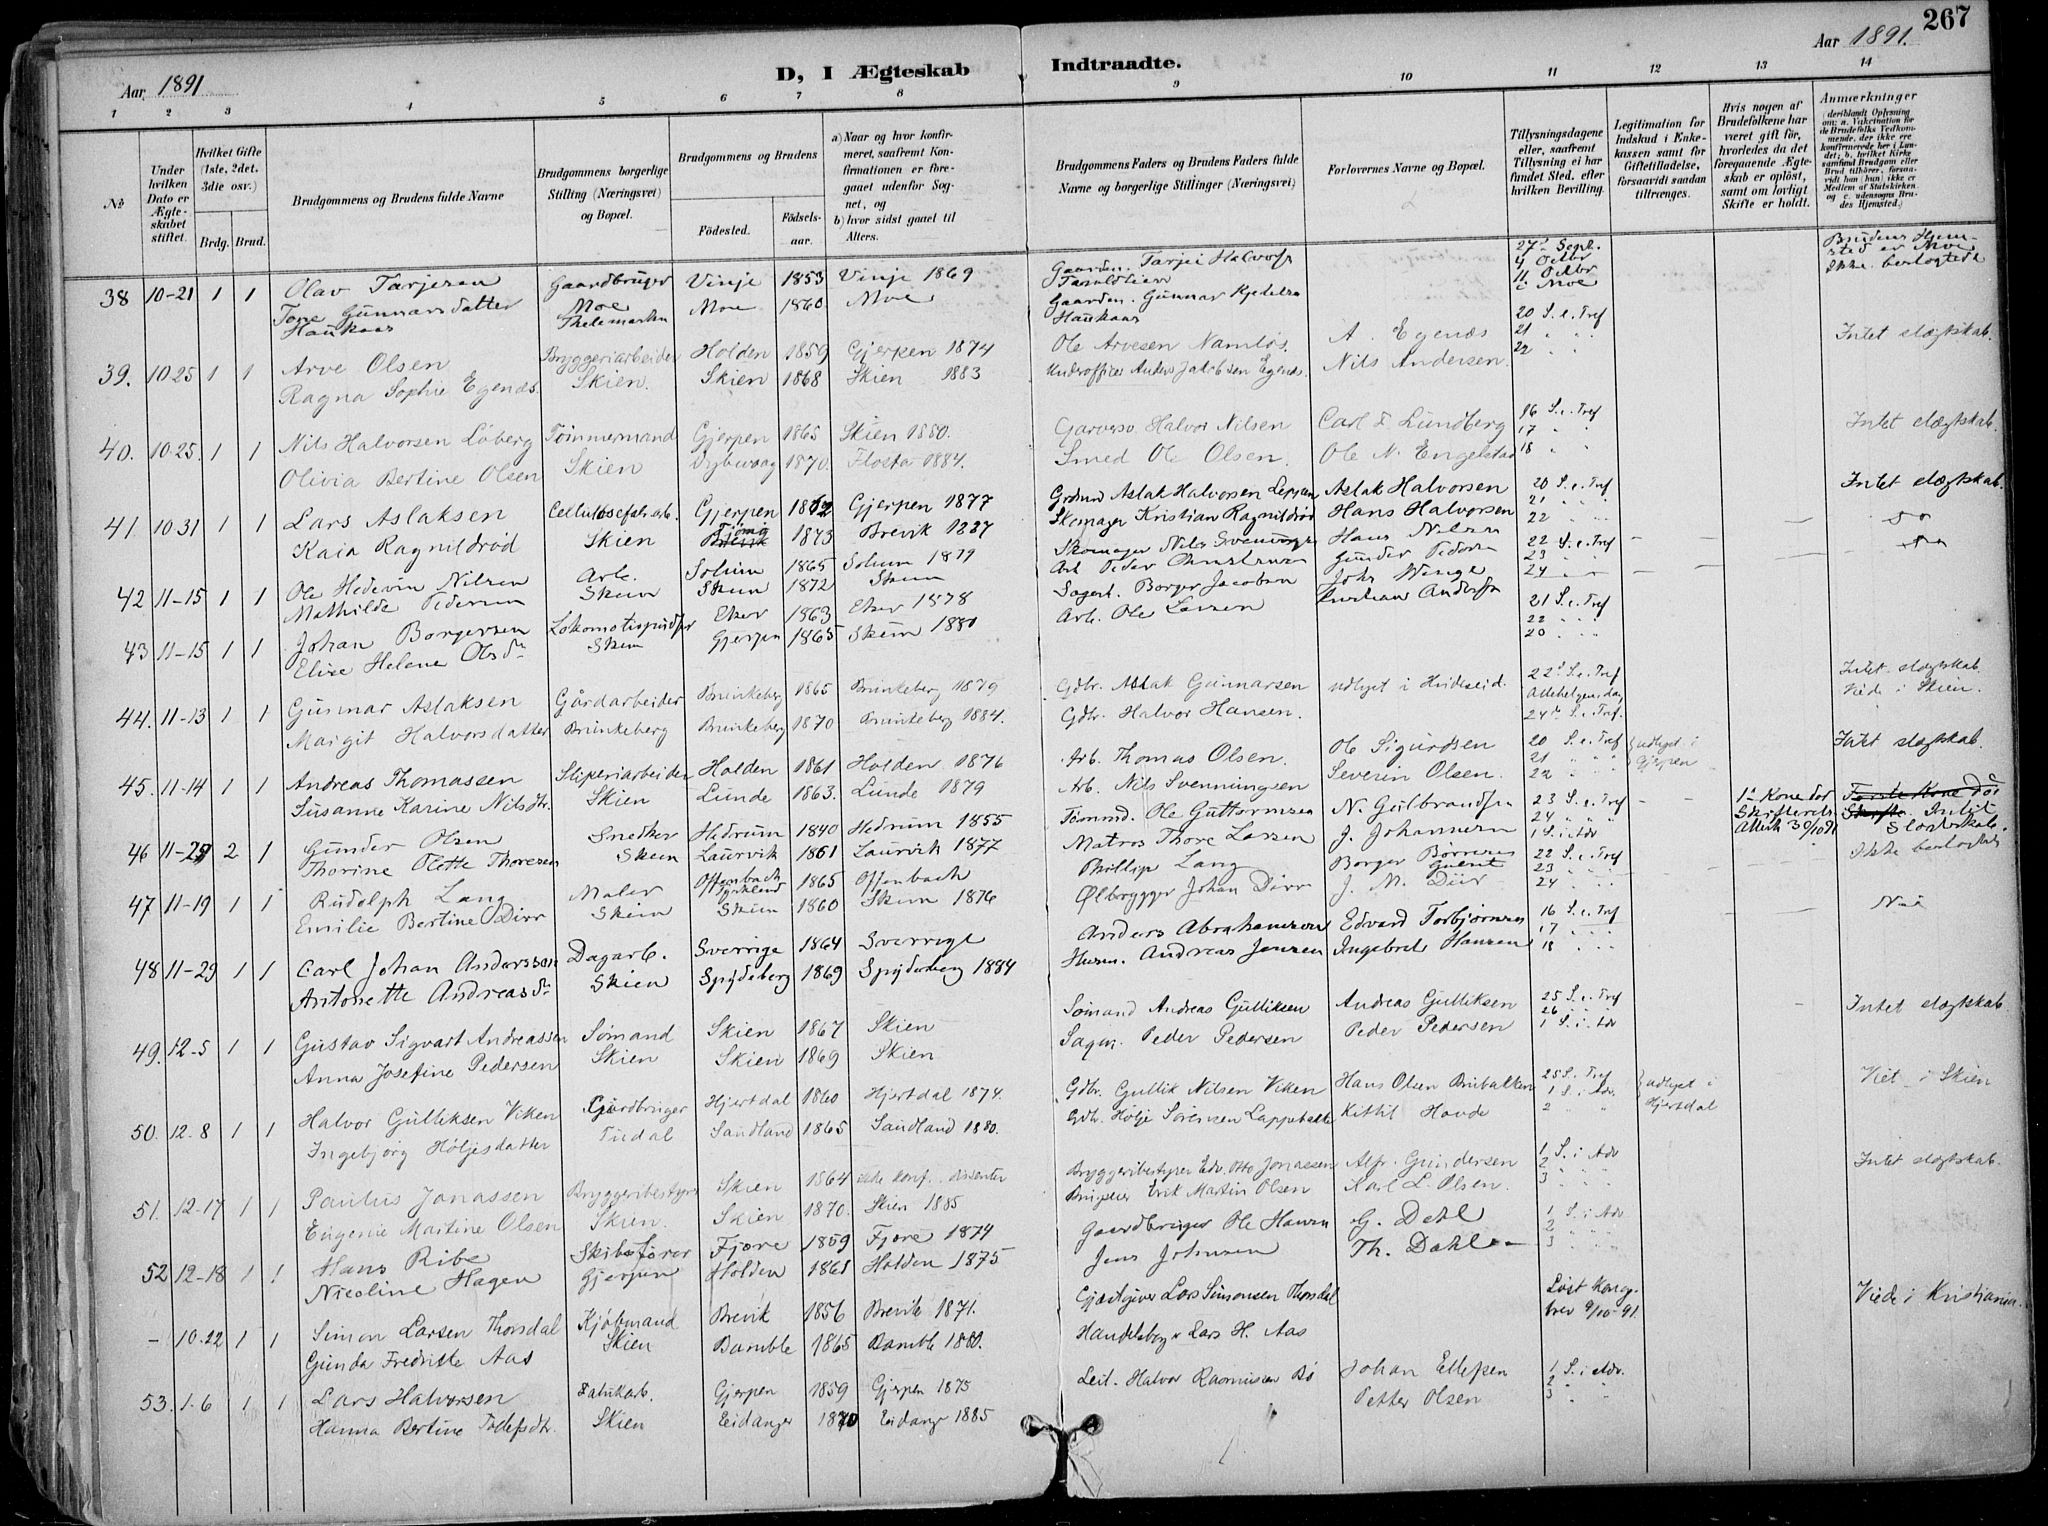 267
Aar 1891
D, I Ægteskab Indtraadte.
Aar 1891.
1 2 3 4 5 6 7 8 9 10 11 12 13 14
No
Under hvilken Dato er Ægteskabet stiftet.
Hvilket Gifte (1ste, 2det, 3die osv.)
Brdg. Brud.
Brudgommens og Brudens fulde Navne
Brudgommens borgerlige Stilling (Næringsvei) og Bopæl.
Brudgommens og Brudens
Födested. Födselsaar.
a) Naar og hvor konfirmeret, saafremt Konfirmationen er foregaaet udenfor Sognet, og
b) hvor sidst gaaet til Alters.
Brudgommens Faders og Brudens Faders fulde Navne og borgerlige Stillinger (Næringsvei)
Forlovernes Navne og Bopæl.
Tillysningsdagene eller, saafremt Tillysning ei har fundet Sted, efter hvilken Bevilling.
Legitimation for Indskud i Enkekassen samt for Giftetilladelse, forsaavidt saadan tiltrænges.
Hvis nogen af Brudefolkene har været gift för, hvorledes da det foregaaende Ægteskab er oplöst, samt om lovligt Skifte er holdt.
Anmærkninger
38 10-21 1 1 Olav Tarjesen Gaardbruger Vinje 1853 Vinje 1869 Gaardm. Tarjei Halvors 27 Sept. 4 Octbr 11 Octbr i Moe
Tone Gunnarsdatter Haukaas Moe Thelemarken Moe 1860 Moe Gaardm. Gunnar Kjedelsen Haukaas
39. 10-25 1 1 Arve Olsen Bryggeriarbeider Holden 1859 Gjerpen 1874 Ole Arvesen Namløs. A. Egenæs 20 S. e. Tref 21 22 Intet slægtskab.
Ragna Sophie Egenæs. Skien. Skien 1868 Skien 1883 Underofficer Anders Jakobsen Egenæs. Nils Andersen.
40. 10-25. 1 1 Nils Halvorsen Løberg Tømmermand Gjerpen 1865 Skien 1880. Garversv. Halvor Nilsen Carl F. Lundberg 16 S. e. Tref 17 18 Intet slægtskab.
Olivia Bertine Olsen Skien Dybvaag 1870. Flosta 1884. Smed Ole Olsen. Ole N. Engelstad
41 10-31 1 1 Lars Aslaksen Cellulosefabr.arb. Gjerpen 1862 Gjerpen 1877 Aslak Halvorsen Aslak Halvorsen 20 S. e. Tref 21 22 Intet slægtskab.
Kaia Ragnildrød Skien Brevik 1873 Brevik 1887 Skomager Kristian Ragnildrød Hans Halvorsen
42 11-15 1 1 Ole Hedevin Nilsen Arb. Solum 1865 Solum 1879 Skomager Nils Svenningsen Hans Nilsen 22 S. e. Tref 23 24
Mathilde Pedersen Skien Skien 1872 Skien Arb. Peder Christensen Gunder Pedersen
43 11-15 1 1 Johan Borgersen Lokomotivpudser Eker 1863 Eker 1878 Sagarb. Borger Jacobsen Johs Wenge 21 S. e. Tref 22 20
Elise Helene Olsdr Skien Gjerpen 1865 Skien 1880 Arb. Ole Larsen
44. 11-13 1 1 Gunnar Aslaksen Gårdarbeider Brunkeberg 1865 Brunkeberg 1879 Gdbr. Aslak Gunnarsen udlyst i Hvideseid. 22 S. e. Tref Allehelgensdag 24 S. e. Tref. Intet slægtskab Viede i Skien.
Margit Halvorsdatter Brunkeberg Brunkeberg 1870 Brunkeberg 1884. Gdbr. Halvor Hansen.
45. 11-14 1 1 Andreas Thomassen Sliperiarbeider Holden 1861 Holden 1876 Arb. Thomas Olsen. Ole Sigurdsen 20 S. e. Tref 21 22 udlyst i Gjerpen Intet slægtskab.
Susanne Karine Nilsdtr. Skien Lunde 1863. Lunde 1879 Arb. Nils Svenningsen Severin Olsen.
46 11-29 2 1 Gunder Olsen Snedker Hedrum 1840 Hedrum 1855 Tømmd. Ole Guttormsen N. Gulbrandsen 23 S. e. Tref 24 1 S. i Adv 1ste Kone død Første Kone død Intet Slægtskab. Ikke beslægtede
Thorine Olette Thoresen Skien Laurvik 1861 Laurvik 1877 Matros Thore Larsen J. Johannesen
47 11-19 1 1 Rudolph Lang Maler Offenbach Tyskland 1865 Offenbach Phillip Lang Borger Børresen 22 S. e. Tref 23 24 Nei
Emilie Bertine Dirr Skien Skien 1860 Skien 1876 Ølbrygger Johan Dirr J. M. Dirr
48 11-29 1 1 Carl Johan Anderssen Dagarb. Sverrige 1864 Sverrige Anders Abrahamsen Edvard Torbjørnsen 16 S. e. Tref 17 18
Antonette Andreasdr Skien Spydeberg 1869 Spydeberg 1884 Husm. Andreas Jensen Ingebret Hansen
49. 12-5 1 1 Gustav Sigvart Andreassen Sømand Skien 1867 Skien Sømand Andreas Gulliksen Andreas Gulliksen 25 S. e. Tref 26 1 S. i Adv Intet slægtskab
Anna Josefine Pedersen Skien Skien 1869 Skien Sagm. Peder Pedersen Peder Pedersen
50. 12-8 1 1 Halvor Gulliksen Viken Gårdbruger Hjertdal 1860 Hjertdal 1874. Gdbr. Gullik Nilsen Viken Hans Olsen Brubakken 25 S. Tref 1 S. i Adv. 2 udlyst i Hjertdal Viet i Skien
Ingebjørg Høljesdatter Tudal Sandland 1865 Sandland 1880. Gdbr. Hølje Sørensen Lappebakke Kittil Hovde
51. 12-17 1 1 Paulus Jonassen Bryggeribestyrer Skien 1864 ikke konf. dissenter Bryggeribestyrer Edv. Otto Jonassen Alfr. Gundersen 1 S. i Adv 2 3 Intet slægtskab.
Eugenie Martine Olsen Skien. Skien 1870. Skien 1885 Erik Martin Olsen Karl L. Olsen.
52 12-18 1 1 Hans Ribe Skibsfører Fjære 1859 Fjære 1874 Gaardbruger Ole Hansen G. Dahl 1 S. i Adv 2 3
Nicoline Hagen Gjerpen Holden 1861 Holden 1875 Jens Johnsen Th. Dahl
- 10-22 1 1 Simon Larsen Thorsdal Kjøbmand Brevik 1856 Brevik 1871. Gjæstgiver Lars Simonsen Thorsdal Løst Kongebrev 9/10-91. Viede i Kristiania.
Gunda Fredrikke Aas Skien Bamble 1865 Bamble 1880. Handelsborger Lars H. Aas
53. 1-6 1 1 Lars Halvorsen Fabrikarb. Gjerpen 1859 Gjerpen 1875 Leil. Halvor Rasmussen Bø Johan Ellefsen 1 S. i Adv. 2 3
Hanna Bertine Tollefsdtr. Skien Eidanger 1870 Eidanger 1885 Petter Olsen